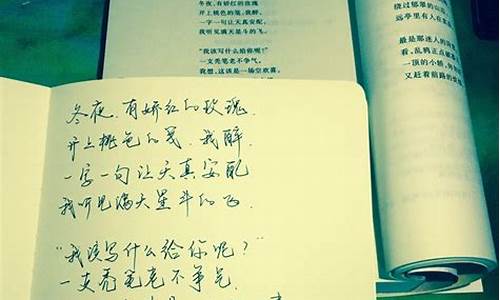 冬夜，有娇红的玫瑰
开上桃色的笺，我醉，
一字一句让天真安配，
我听见满天星斗的飞。
“我该写什么给你呢？”
一支秃笔老不争气，
我想，这该是一场空欢喜。
绕过郁翠的山
远亭里有人在
最是那迷人的
看，乱鸦正点破
一顶的小轿，
又赶着前路的
冬夜，有娇红的玫瑰，
开上桃色的笺，我醉
一字一句让天真安配
我听见满天星斗的飞
“我该写什么给你呢？”
一支秃笔老不争气